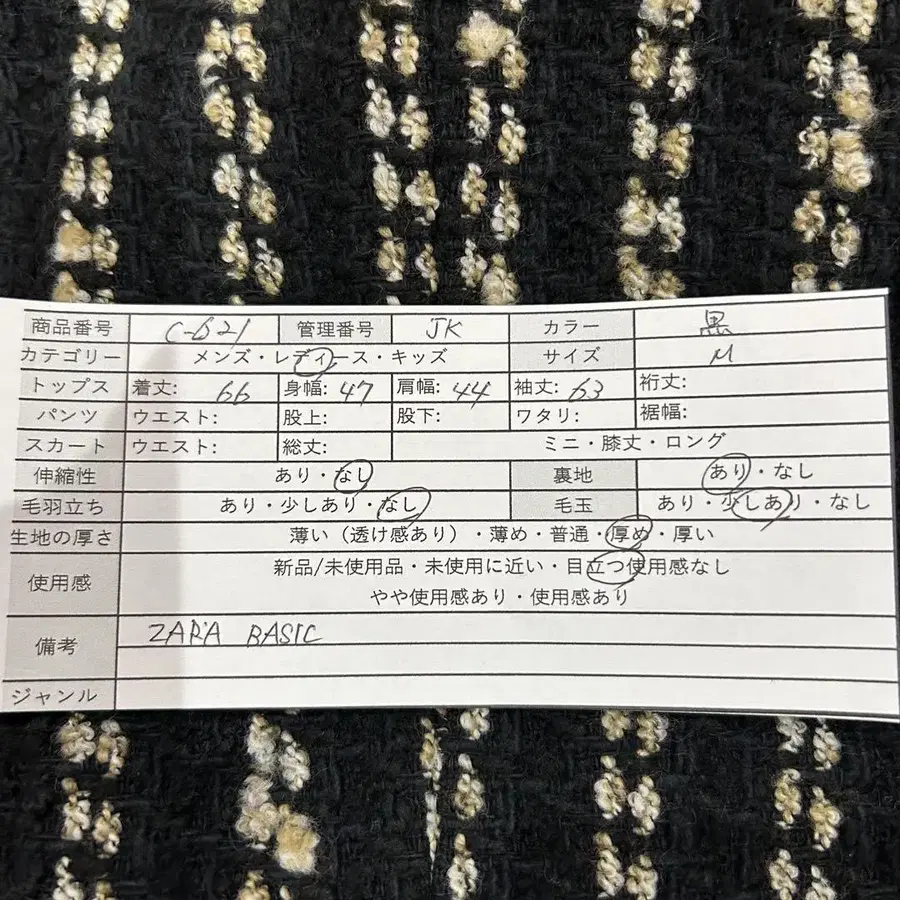 商品番号 C-621 管理番号 JK カラー 黒
カテゴリー メンズ・レディース・キッズ サイズ M
トップス 着丈: 66 身幅: 47 肩幅: 44 袖丈: 63 裄丈:
パンツ ウエスト: 股上: 股下: ワタリ: 裾幅:
スカート ウエスト: 総丈: ミニ・膝丈・ロング
伸縮性 あり・なし 裏地 あり・なし
毛羽立ち あり・少しあり・なし 毛玉 あり・少しあり・なし
生地の厚さ 薄い（透け感あり）・薄め・普通・厚め・厚い
使用感 新品/未使用品・未使用に近い・目立つ使用感なし
やや使用感あり・使用感あり
備考 ZARA BASIC
ジャンル